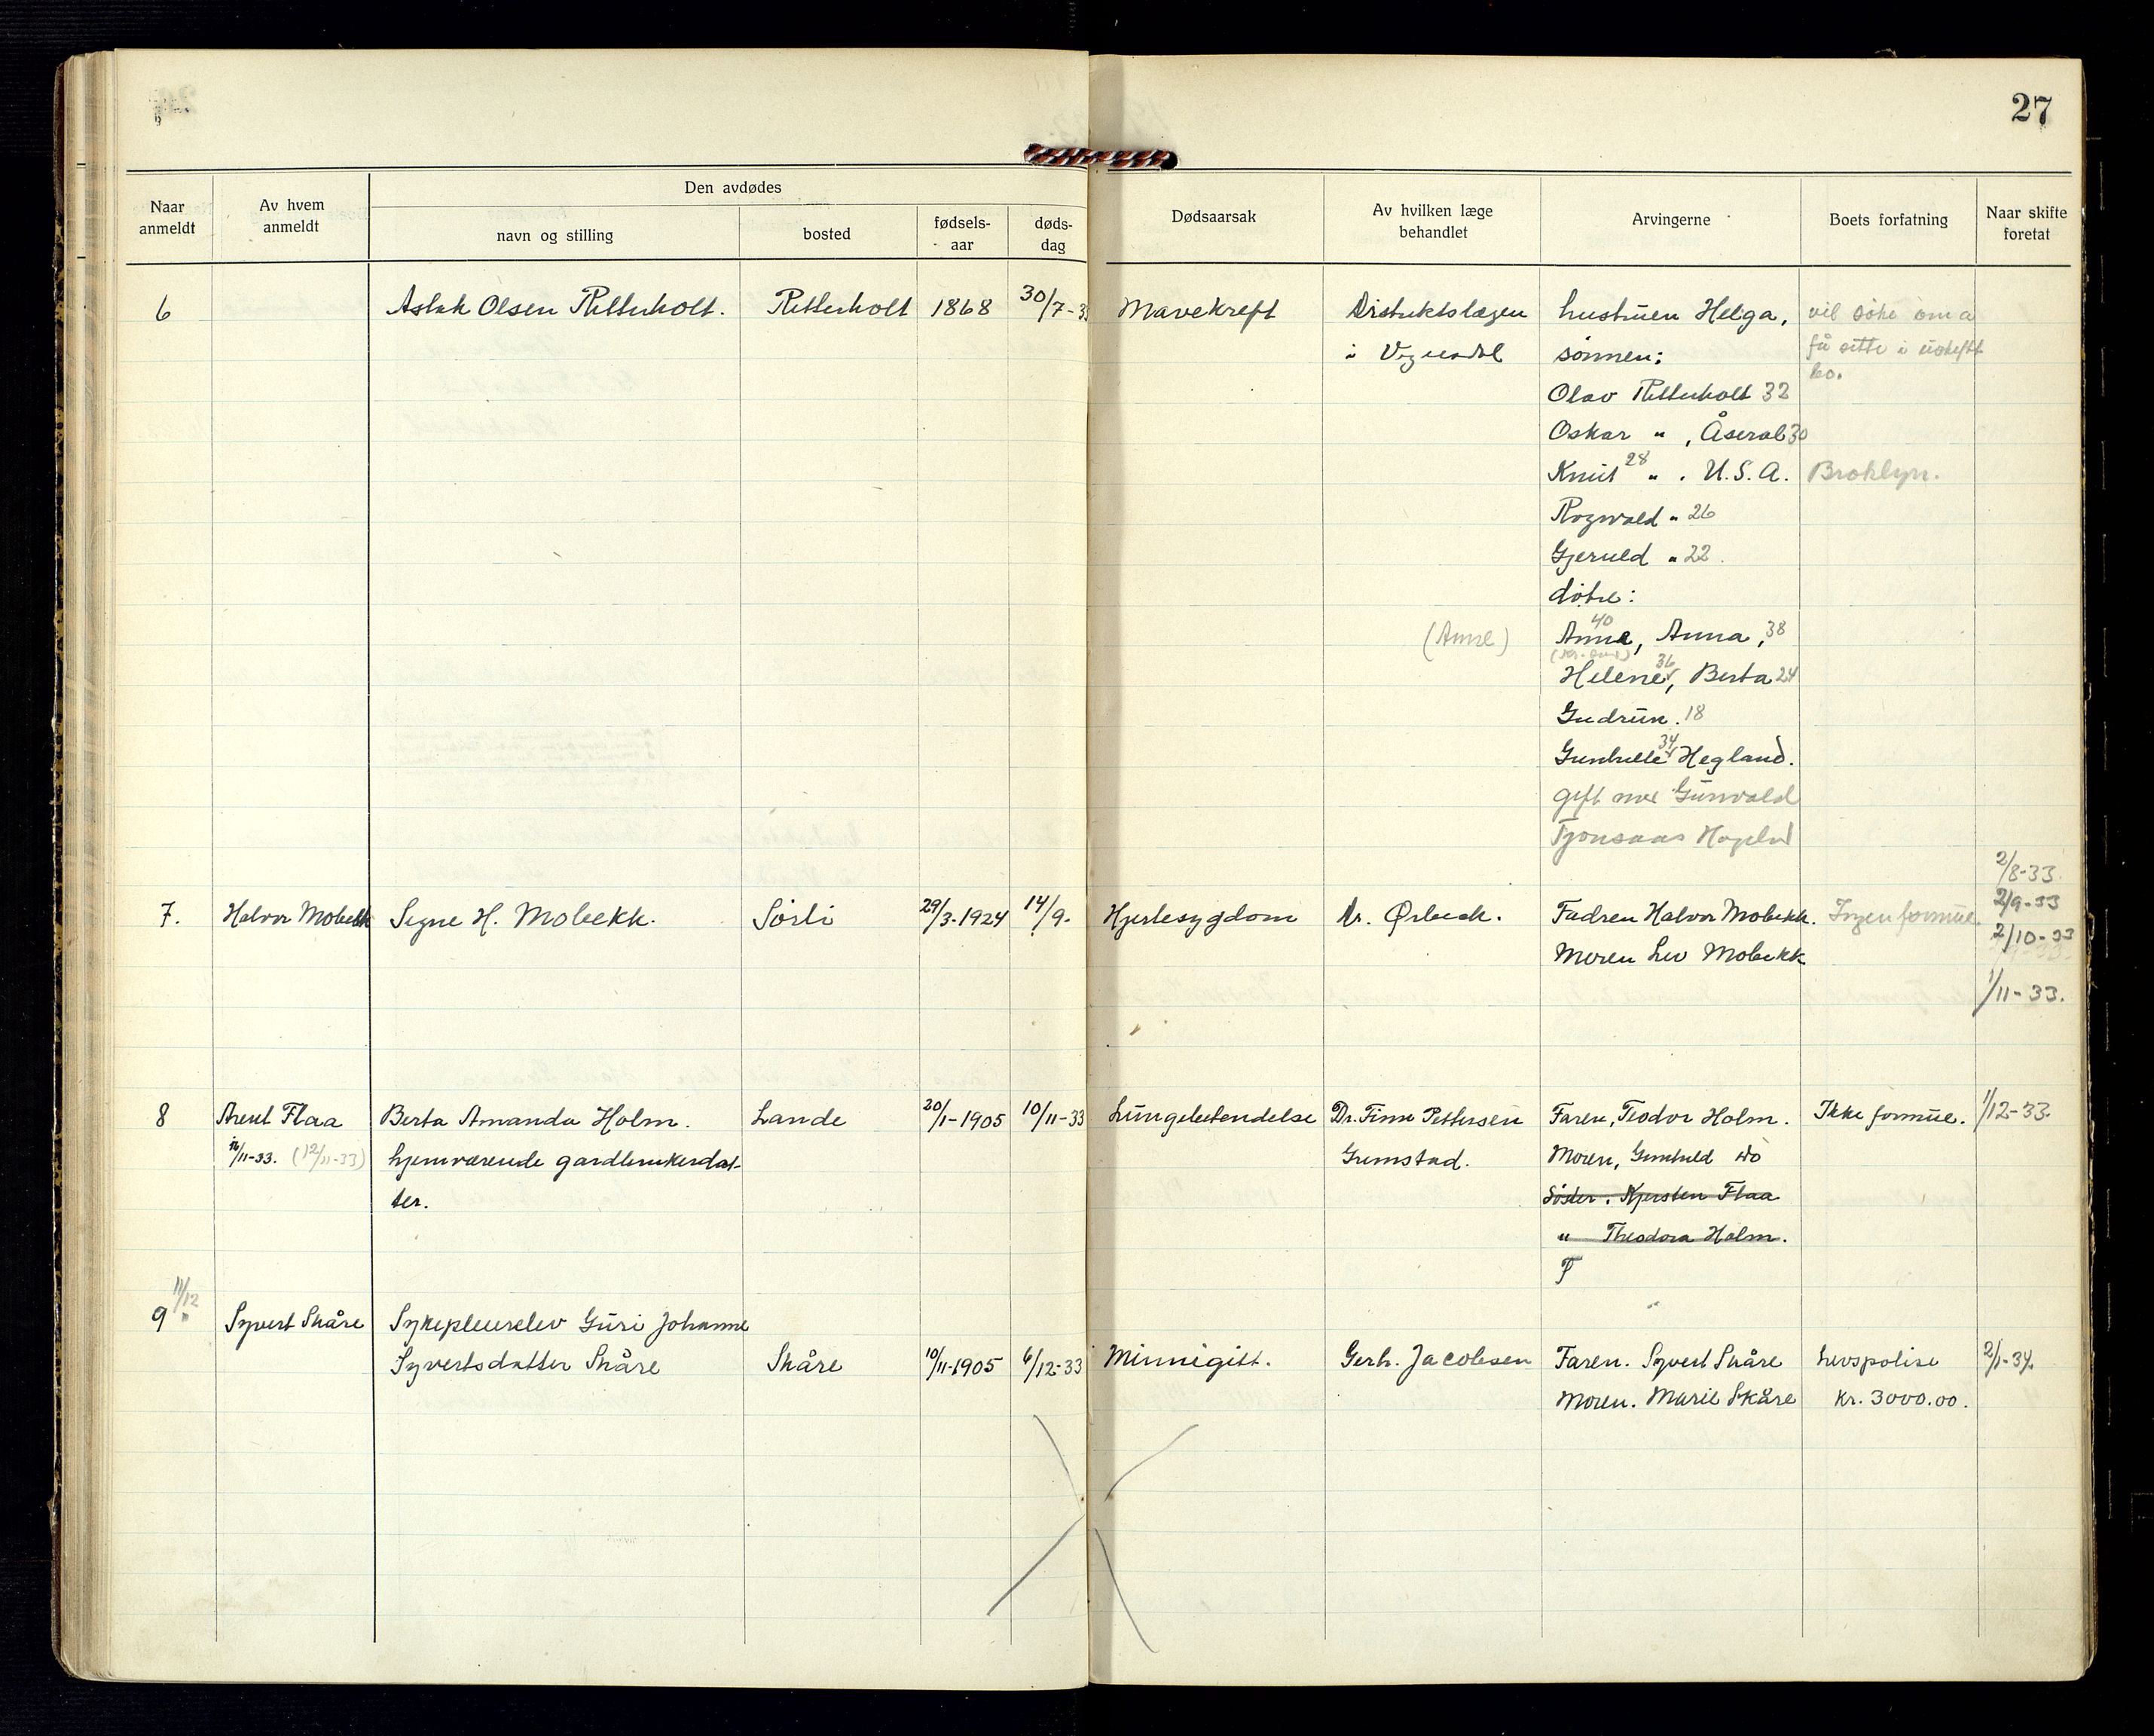 27
Naar anmeldt
Av hvem anmeldt
Den avdødes
navn og stilling
bosted
fødsels-aar
døds-dag
Dødsaarsak
Av hvilken læge behandlet
Arvingerne
Boets forfatning
Naar skifte foretat
6 Aslak Olsen Retterholt. Retterholt 1868 30/7-33 Mavekreft Distriktslægen hustruen Helga, vil søke om a
i Vegusdal sønnen: få sitte i uskiftt
bo.
Olav Retterholt 32
Oskar " , Åseral 30
Knut 28 " . U.S.A. Broklyn.
Rogwald " 26
Gjeruld " 22.
døtre:
(Anne) Anna 40, Anna, 38
Helene 36, Berta 24
Gudrun. 18
Gunhulle 34 Hegland.
gift med Gunvald
Tjonsaas Hægelnd
2/8-33.
7. Halvor Mobekk Signe H. Mobekk. Sørli 29/3-1924 14/9- Hjertesygdom Dr. Ørbeck. Fadren Halvor Mobekk. Ingen formue 2/9-33
2/10-33
Moren Liv Mobekk
1/11-33.
8 Aksel Flaa Berta Amanda Holm. Lande 20/1-1905 10/11-33 Lungebetendelse Dr. Finn Pettersen Faren, Teodor Holm. Ikke formue. 1/12-33.
/11-33. (12/11-33) hjemværende gardbrukerdat- Grimstad. Moren, Gunhild do
ter. Søster. Kjersten Flaa
" Theodora Holm.
T
9 11/12 Syvert Skåre Sykepleierelev Guri Johanne
Syvertsdatter Skåre Skåre 10/11-1905 6/12-33 Minnigitt. Gerh. Jacobsen Faren. Syvert Skåre Livspolise 2/1-34.
Moren. Marie Skåre kr. 3000.00.